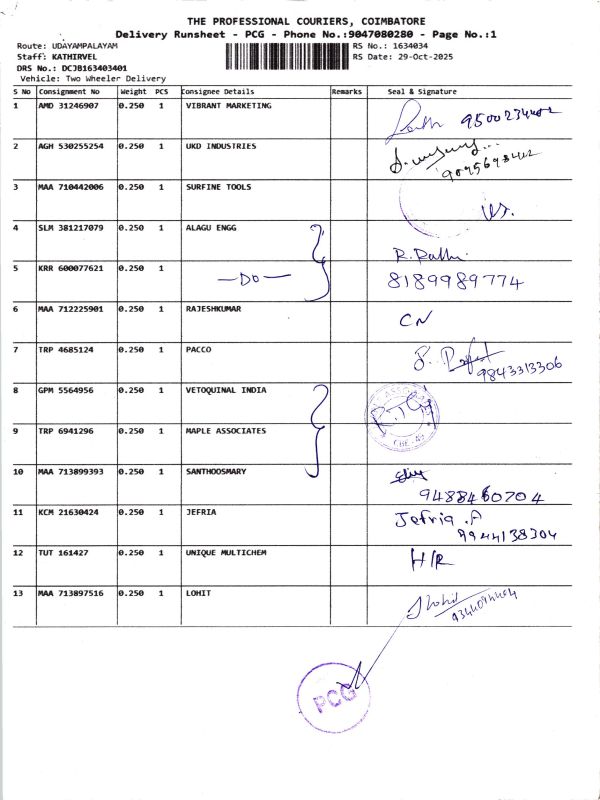 THE PROFESSIONAL COURIERS, COIMBATORE
Delivery Runsheet - PCG - Phone No.:9047080280 - Page No.:1
Route: UDAYAMPALAYAM RS No.: 1634034
Staff: KATHIRVEL RS Date: 29-Oct-2025
DRS No.: DCJB163403401
Vehicle: Two Wheeler Delivery
S No Consignment No Weight PCS Consignee Details Remarks Seal & Signature
1 AMD 31246907 0.250 1 VIBRANT MARKETING
2 AGH 530255254 0.250 1 UKD INDUSTRIES
3 MAA 710442006 0.250 1 SURFINE TOOLS
4 SLM 381217079 0.250 1 ALAGU ENGG R. Rathi
5 KRR 600077621 0.250 1 —DO— 8189989774
6 MAA 712225901 0.250 1 RAJESHKUMAR CN
7 TRP 4685124 0.250 1 PACCO 9843313306
8 GPM 5564956 0.250 1 VETOQUINAL INDIA
9 TRP 6941296 0.250 1 MAPLE ASSOCIATES
10 MAA 713899393 0.250 1 SANTHOOSMARY 9488460704
11 KCM 21630424 0.250 1 JEFRIA Jefria .A
9944138304
12 TUT 161427 0.250 1 UNIQUE MULTICHEM H/R
13 MAA 713897516 0.250 1 LOHIT Lohit
PCG